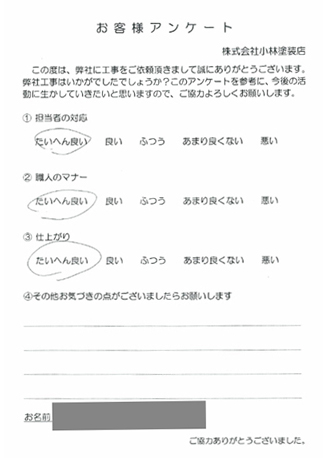 お客様アンケート
株式会社小林塗装店
この度は、弊社に工事をご依頼頂きまして誠にありがとうございます。
弊社工事はいかがでしたでしょうか？このアンケートを参考に、今後の活
動に生かしていきたいと思いますので、ご協力よろしくお願いします。
① 担当者の対応
たいへん良い 良い ふつう あまり良くない 悪い
② 職人のマナー
たいへん良い 良い ふつう あまり良くない 悪い
③ 仕上がり
たいへん良い 良い ふつう あまり良くない 悪い
④その他お気づきの点がございましたらお願いします
お名前
ご協力ありがとうございました。